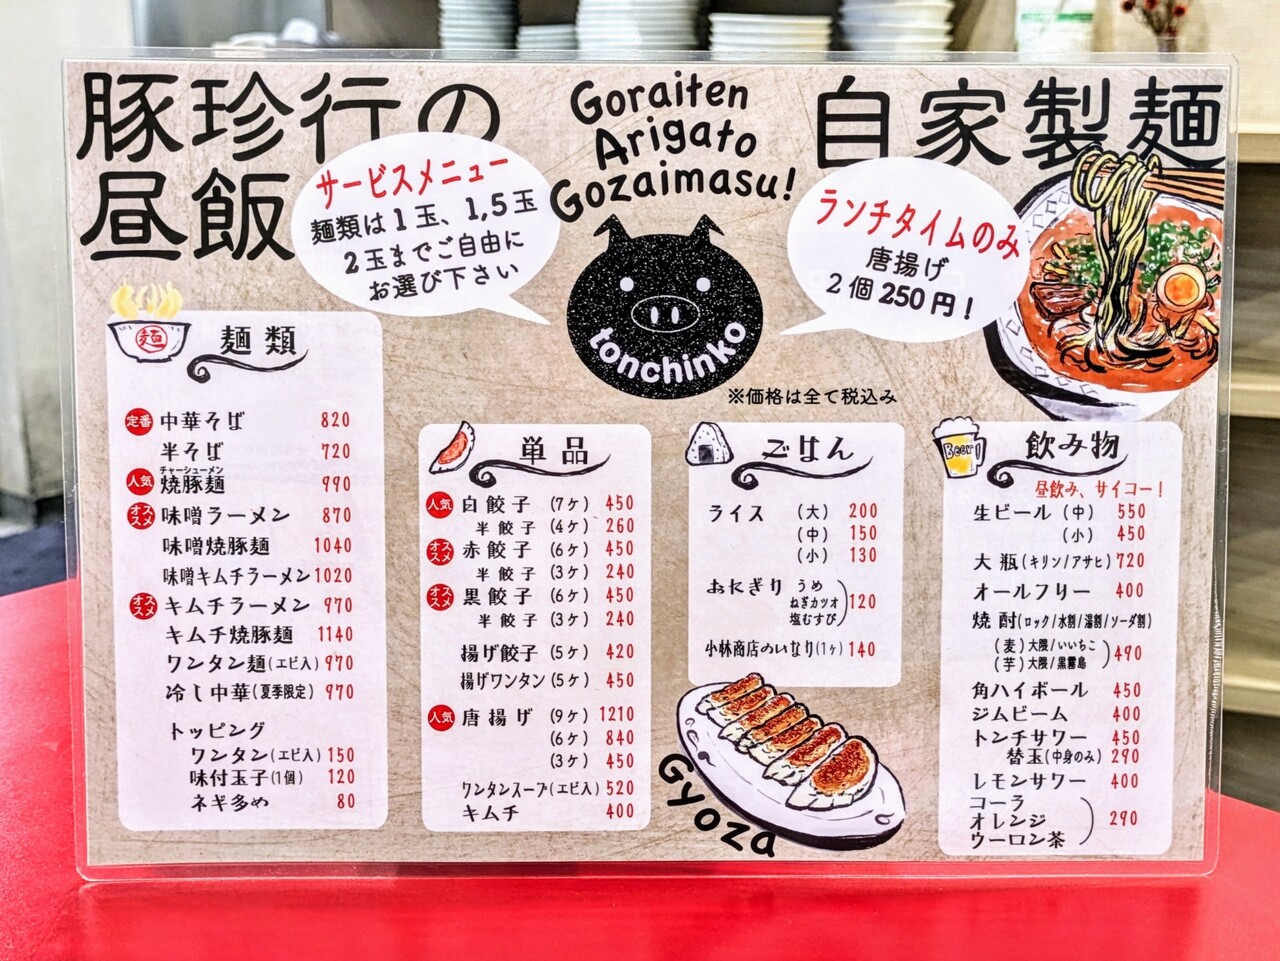 豚珍行の
昼飯
サービスメニュー
麺類は1玉、1,5玉
2玉までご自由に
お選び下さい
Goraiten
Arigato
Gozaimasu!
tonchinko
自家製麺
ランチタイムのみ
唐揚げ
2個250円!
※価格は全て税込み
麺
麺類
定番 中華そば 820
半そば 720
チャーシューメン
人気 焼豚麺 990
オススメ 味噌ラーメン 870
味噌焼豚麺 1040
味噌キムチラーメン 1020
オススメ キムチラーメン 970
キムチ焼豚麺 1140
ワンタン麺(エビ入) 970
冷し中華(夏季限定) 970
トッピング
ワンタン(エビ入) 150
味付玉子(1個) 120
ネギ多め 80
単品
人気 白餃子 (7ヶ) 450
半餃子 (4ヶ) 260
オススメ 赤餃子 (6ヶ) 450
半餃子 (3ヶ) 240
オススメ 黒餃子 (6ヶ) 450
半餃子 (3ヶ) 240
揚げ餃子 (5ヶ) 420
揚げワンタン (5ヶ) 450
人気 唐揚げ (9ヶ) 1210
(6ヶ) 840
(3ヶ) 450
ワンタンスープ(エビ入) 520
キムチ 400
ごはん
ライス (大) 200
(中) 150
(小) 130
おにぎり うめ
ねぎカツオ 120
塩むすび
小林商店のいなり(1ヶ) 140
Gyoza
Beer
飲み物
昼飲み、サイコー!
生ビール (中) 550
(小) 450
大瓶(キリン/アサヒ) 720
オールフリー 400
焼酎(ロック/水割/湯割/ソーダ割)
(麦)大隅/いいちこ
(芋)大隅/黒霧島 490
角ハイボール 450
ジムビーム 400
トンチサワー 450
替玉(中身のみ) 290
レモンサワー 400
コーラ
オレンジ 290
ウーロン茶